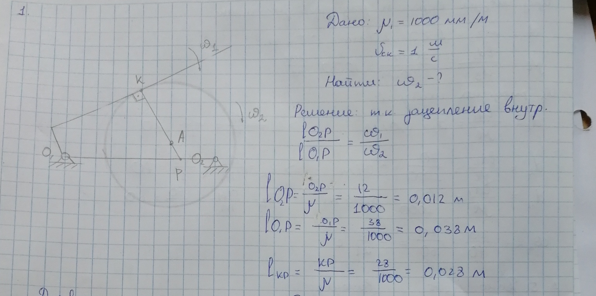 1.
ω₁
K
ω₂
A
O₁
O₂
P
Дано: μ₁ = 1000 мм/м
= 1 м/с
Найти: ω₂ - ?
Решение т.к зацепление внутр.
lO₂P / lO₁P = ω₁ / ω₂
lO₂P = O₂P / μ = 12 / 1000 = 0,012 м
lO₁P = O₁P / μ = 38 / 1000 = 0,038 м
lKP = KP / μ = 23 / 1000 = 0,023 м